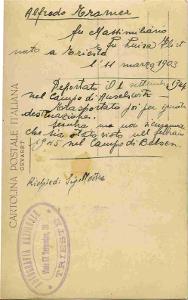 Alfredo Kramer
fu Massimiliano
fu Luisa
nato a Trieste
l'11 marzo 1903
Deportato il 1 settembre 1944
nel Campo di Auschwitz
trasportato poi per ignota
destinazione.
ma non sicurezza
che sia stato visto nel febbraio
1945 nel Campo di Belsen.
CARTOLINA POSTALE ITALIANA
TRIESTE